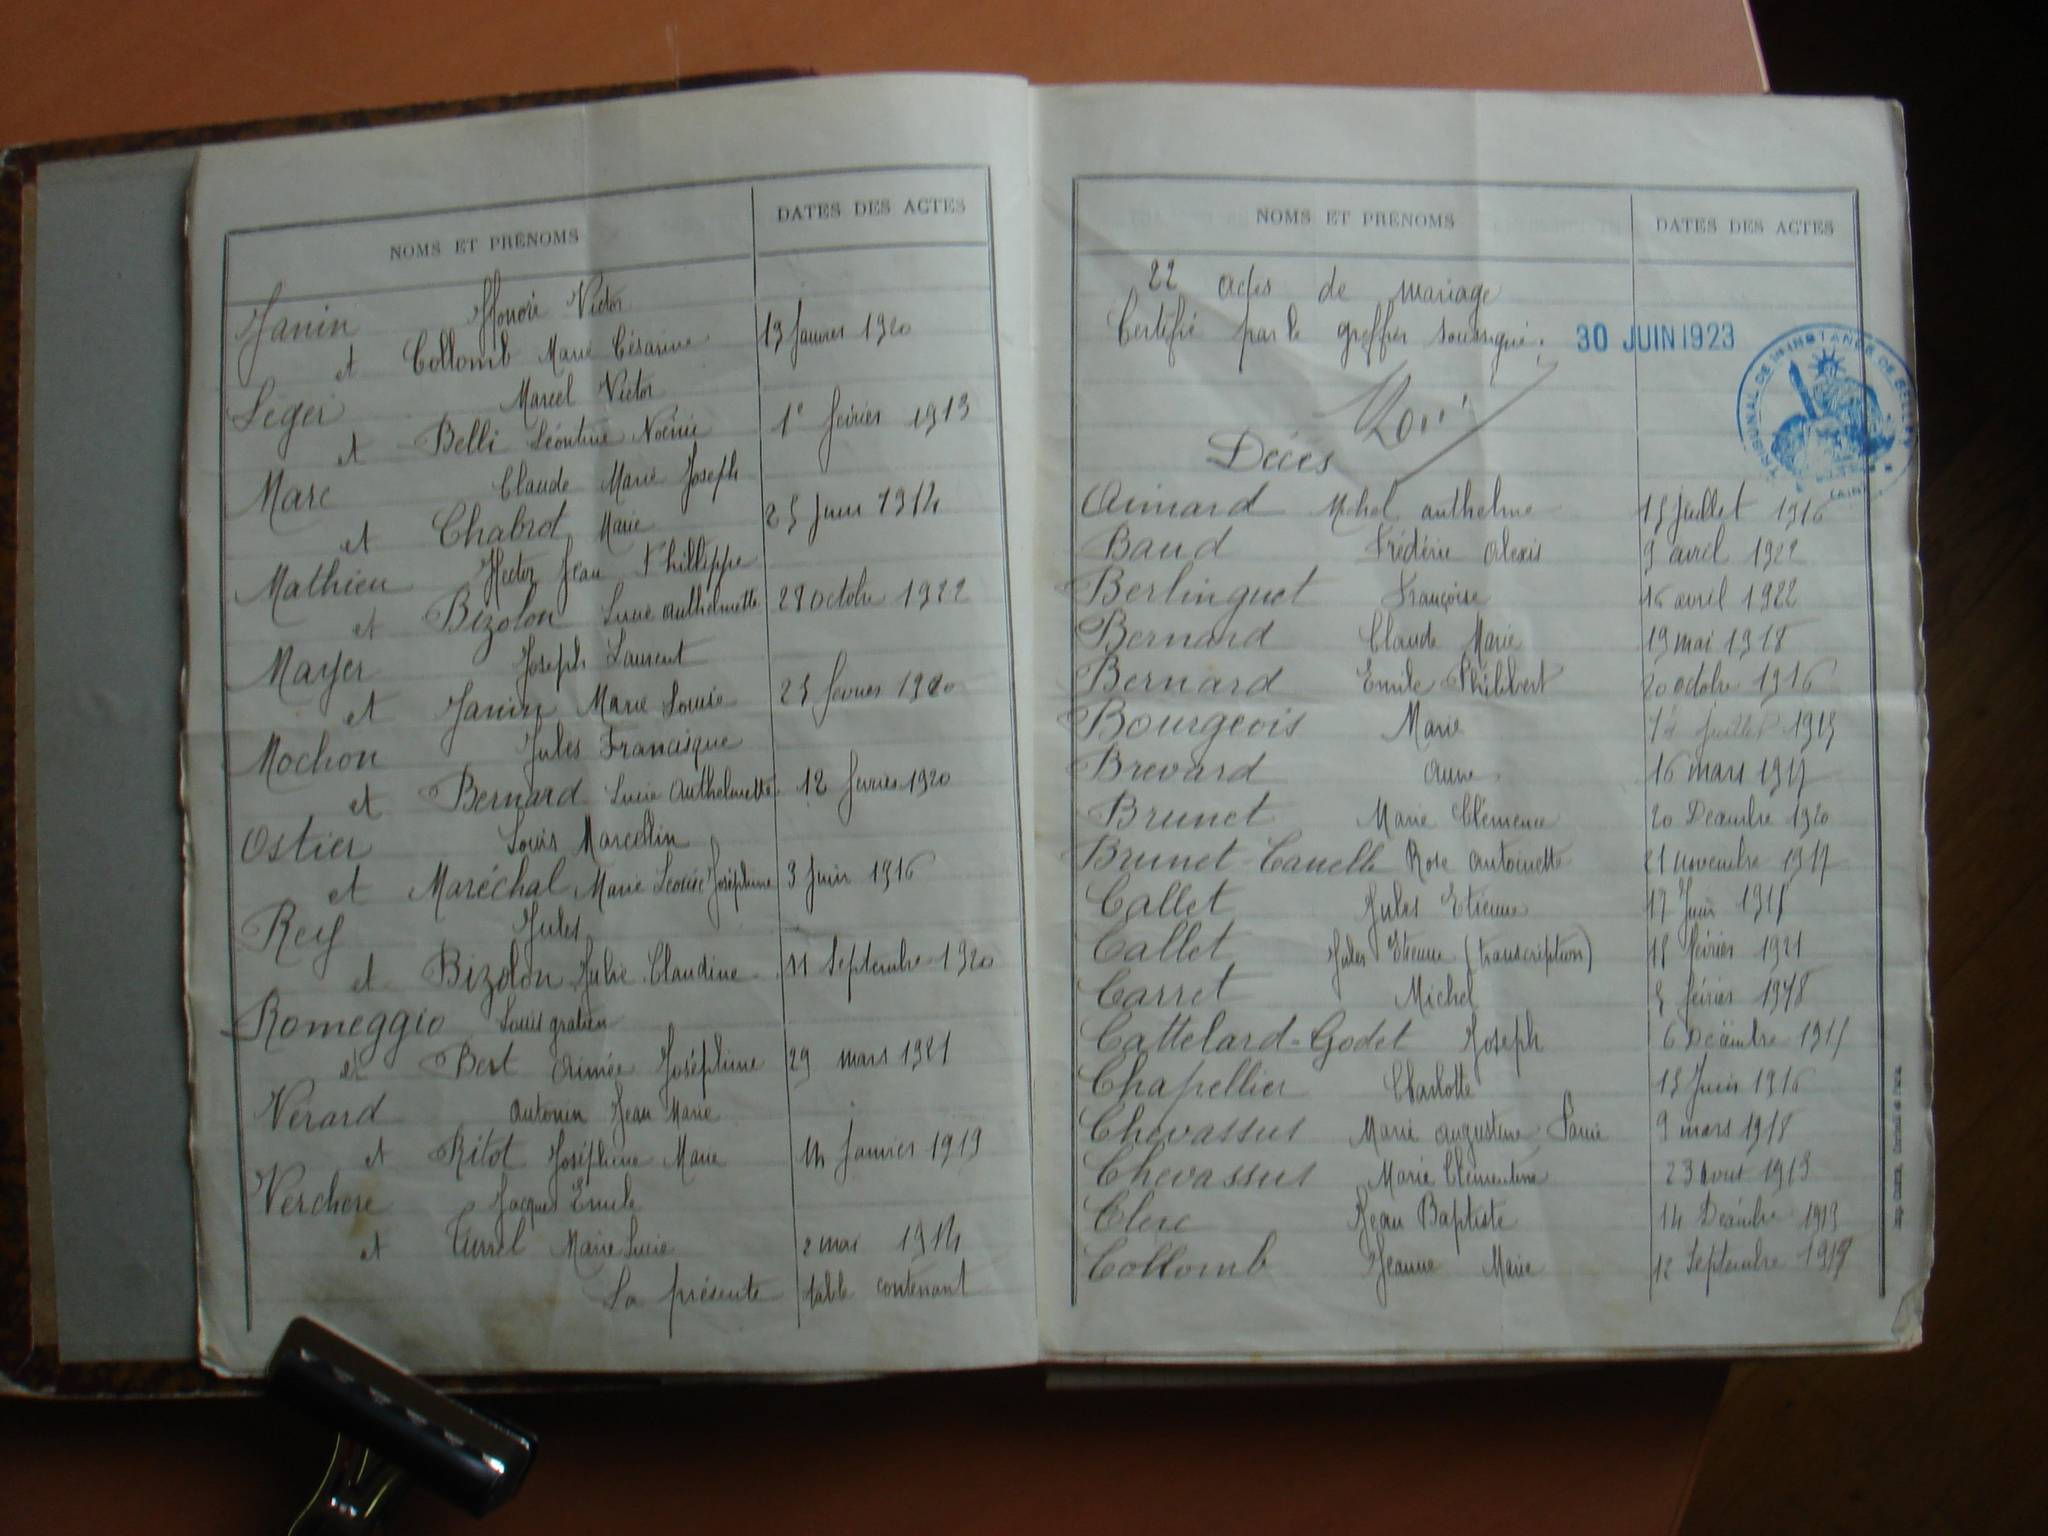 NOMS ET PRÉNOMS DATES DES ACTES
Janin Honoré Victor
et Collomb Marie Césarine 13 Janvier 1920
Léger Marcel Victor
et Belli Léontine Noémie 1e février 1913
Marc Claude Marie Joseph
et Chabrot Marie 25 Juin 1914
Mathieu Hector Jean Phillippe
et Bizolon Lucie Anthelmette 28 octobre 1922
Mayer Joseph Laurent
et Janin Marie Louise 25 février 1920
Mochon Jules Francisque
et Bernard Lucie Anthelmette 12 février 1920
Ostier Louis Marcellin
et Maréchal Marie Joséphine 3 Juin 1916
Rey Jules
et Bizolon Julie Claudine 11 Septembre 1920
Romeggio Louis gratien
et Bert Aimée Joséphine 29 mars 1921
Verard Antonin Jean Marie
et Ritot Joséphine Marie 14 Janvier 1919
Verchere Jacques Emile
et Marie Lucie 2 mai 1914
La présente table contenant
NOMS ET PRÉNOMS DATES DES ACTES
22 actes de mariage
Certifié par le greffier soussigné. 30 JUIN 1923
TRIBUNAL DE 1re INSTANCE DE BELLEY
(AIN)
Décès
Aimard Michel anthelme 15 Juillet 1916
Baud Frédéric Alexis 9 avril 1922
Berlinguet Françoise 16 avril 1922
Bernard Claude Marie 19 mai 1918
Bernard Emile Philibert 20 octobre 1916
Bourgeois Marie Juillet
Brevard Anne 16 mars 1917
Brunet Marie Clémence 20 Décembre 1920
Brunet-Canelle Rose Antoinette 21 novembre 1917
Callet Jules Etienne 17 Juin
Callet Jules Etienne (transcription) 18 février 1921
Carret Michel 5 février 1918
Cattelard-Godet Joseph 6 Décembre
Chapellier Charlotte 15 Juin 1916
Chevassus Marie Augustine 9 mars 1918
Chevassus Marie Clémentine 23 Aout 1913
Clerc Jean Baptiste 14 Décembre 1913
Collomb Jeanne Marie 12 Septembre 1919